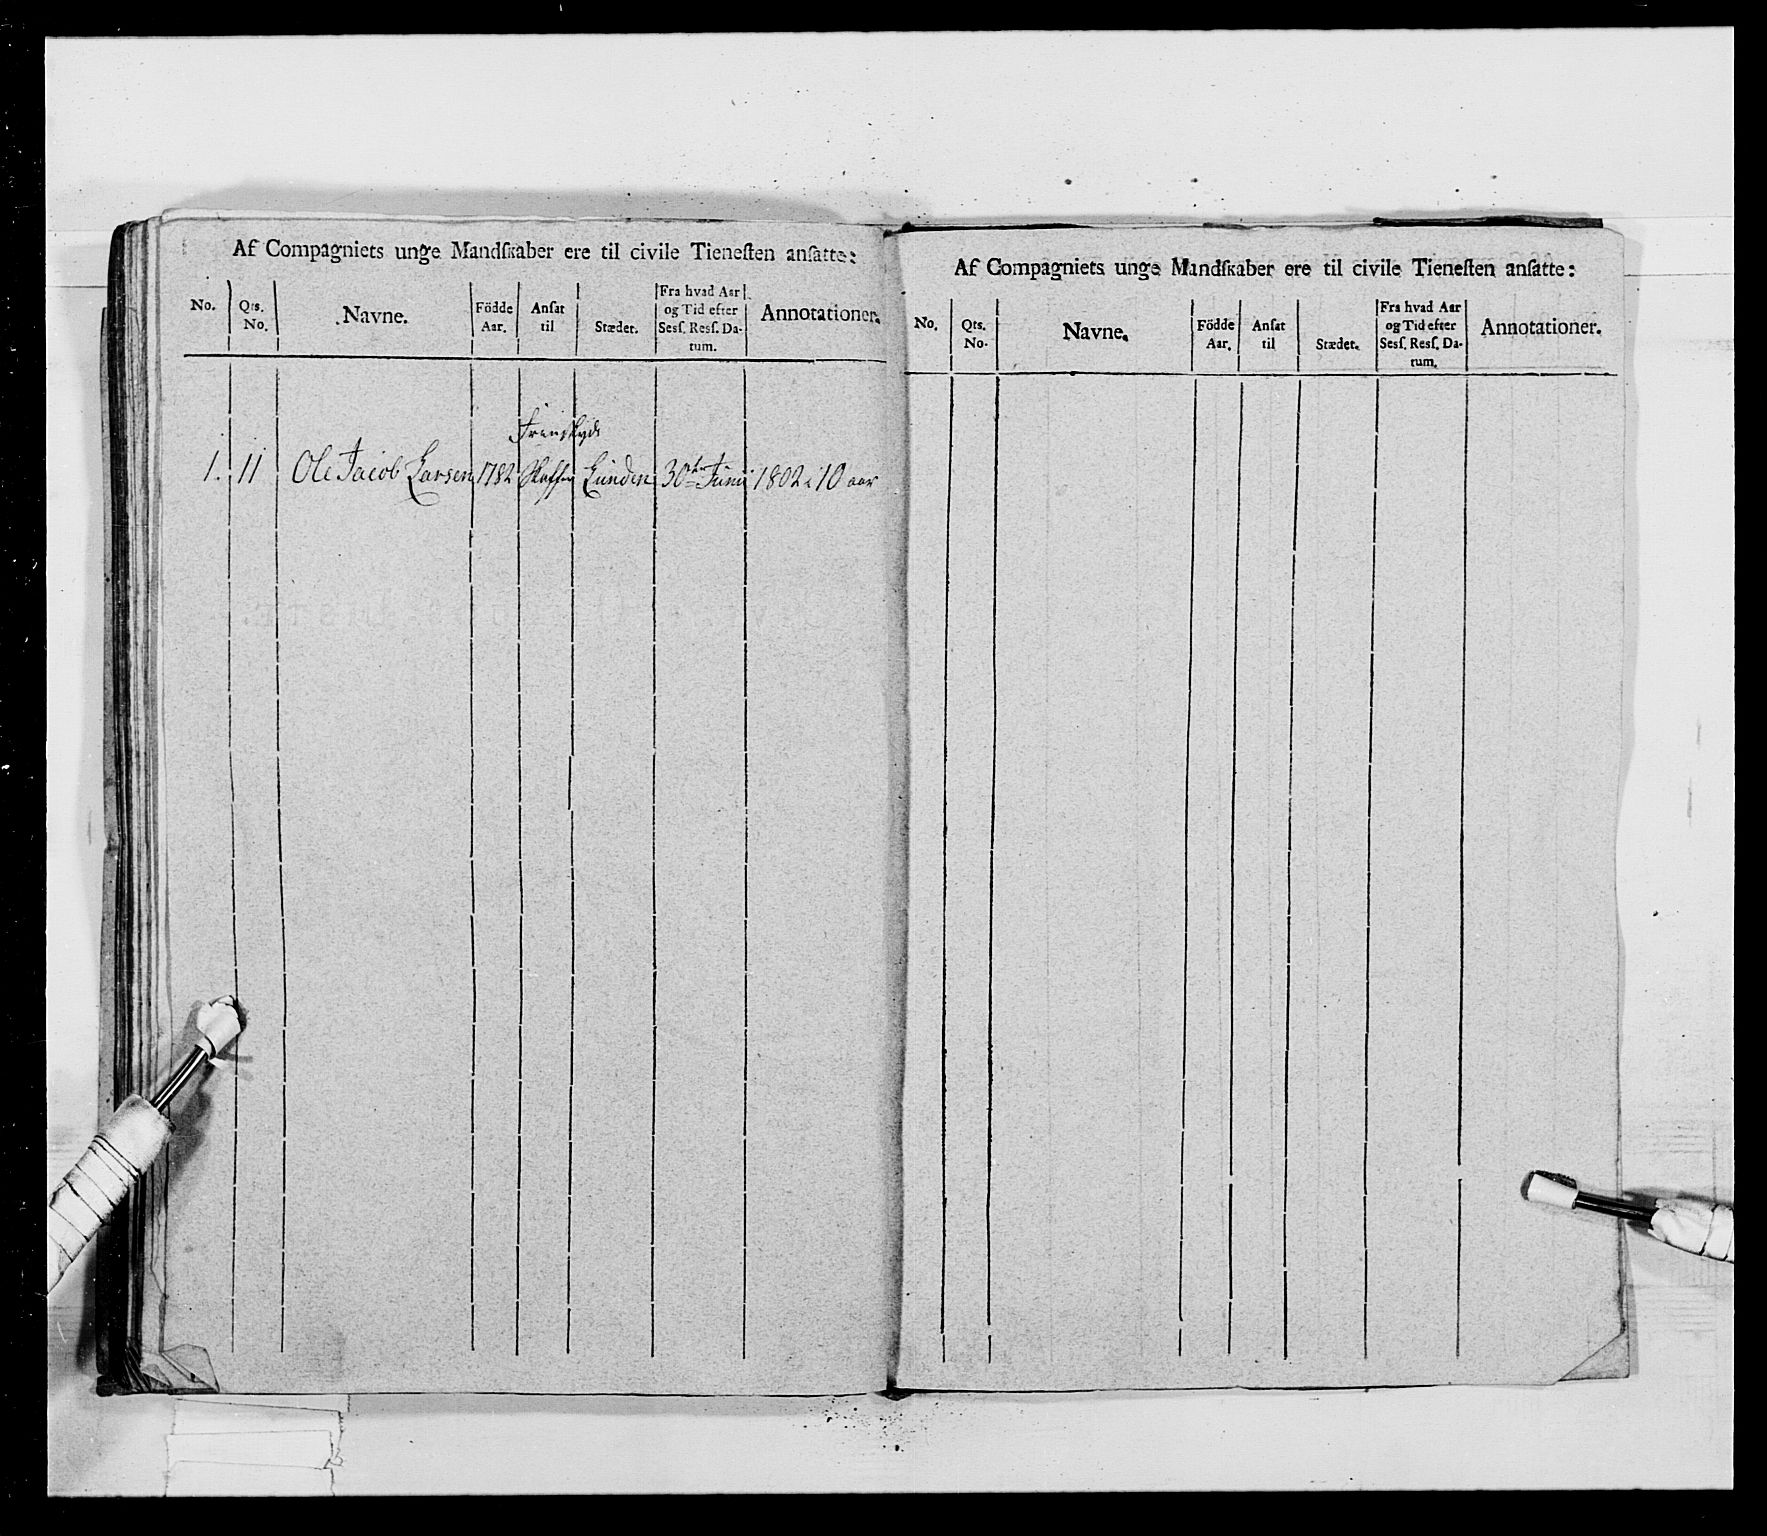 Af Compagniets unge Mandſkaber ere til civile Tieneſten anſatte:
No. Qts. No. Navne. Födde Aar. Anſat til Stædet. Fra hvad Aar og Tid efter Seſſ. Reſſ. Datum. Annotationer.
1. 11 Ole Jacob Larsen 1782 Lunden 30te Junii 1802 i 10 aar
Af Compagniets unge Mandſkaber ere til civile Tieneſten anſatte:
No. Qts. No. Navne. Födde Aar. Anſat til Stædet. Fra hvad Aar og Tid efter Seſſ. Reſſ. Datum. Annotationer.